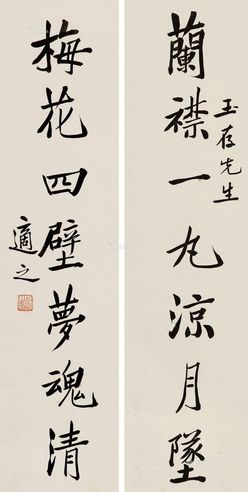 蘭襟一丸涼月墜
玉存先生
梅花四壁夢魂清
適之